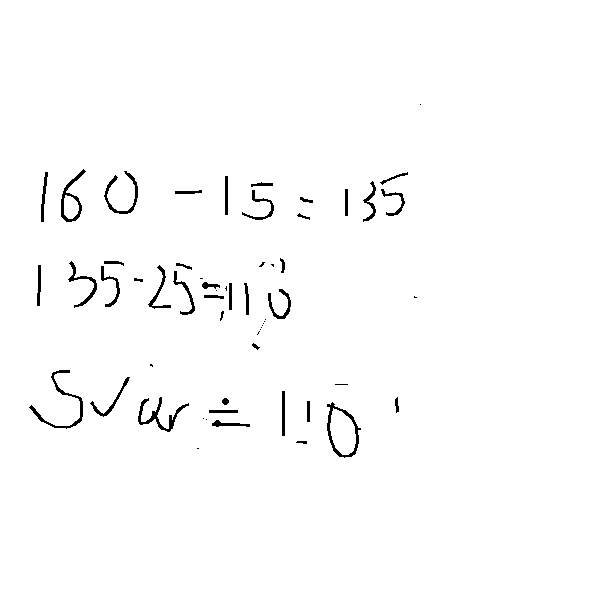 160 - 15 = 135
135 - 25 = 110
Svar = 110